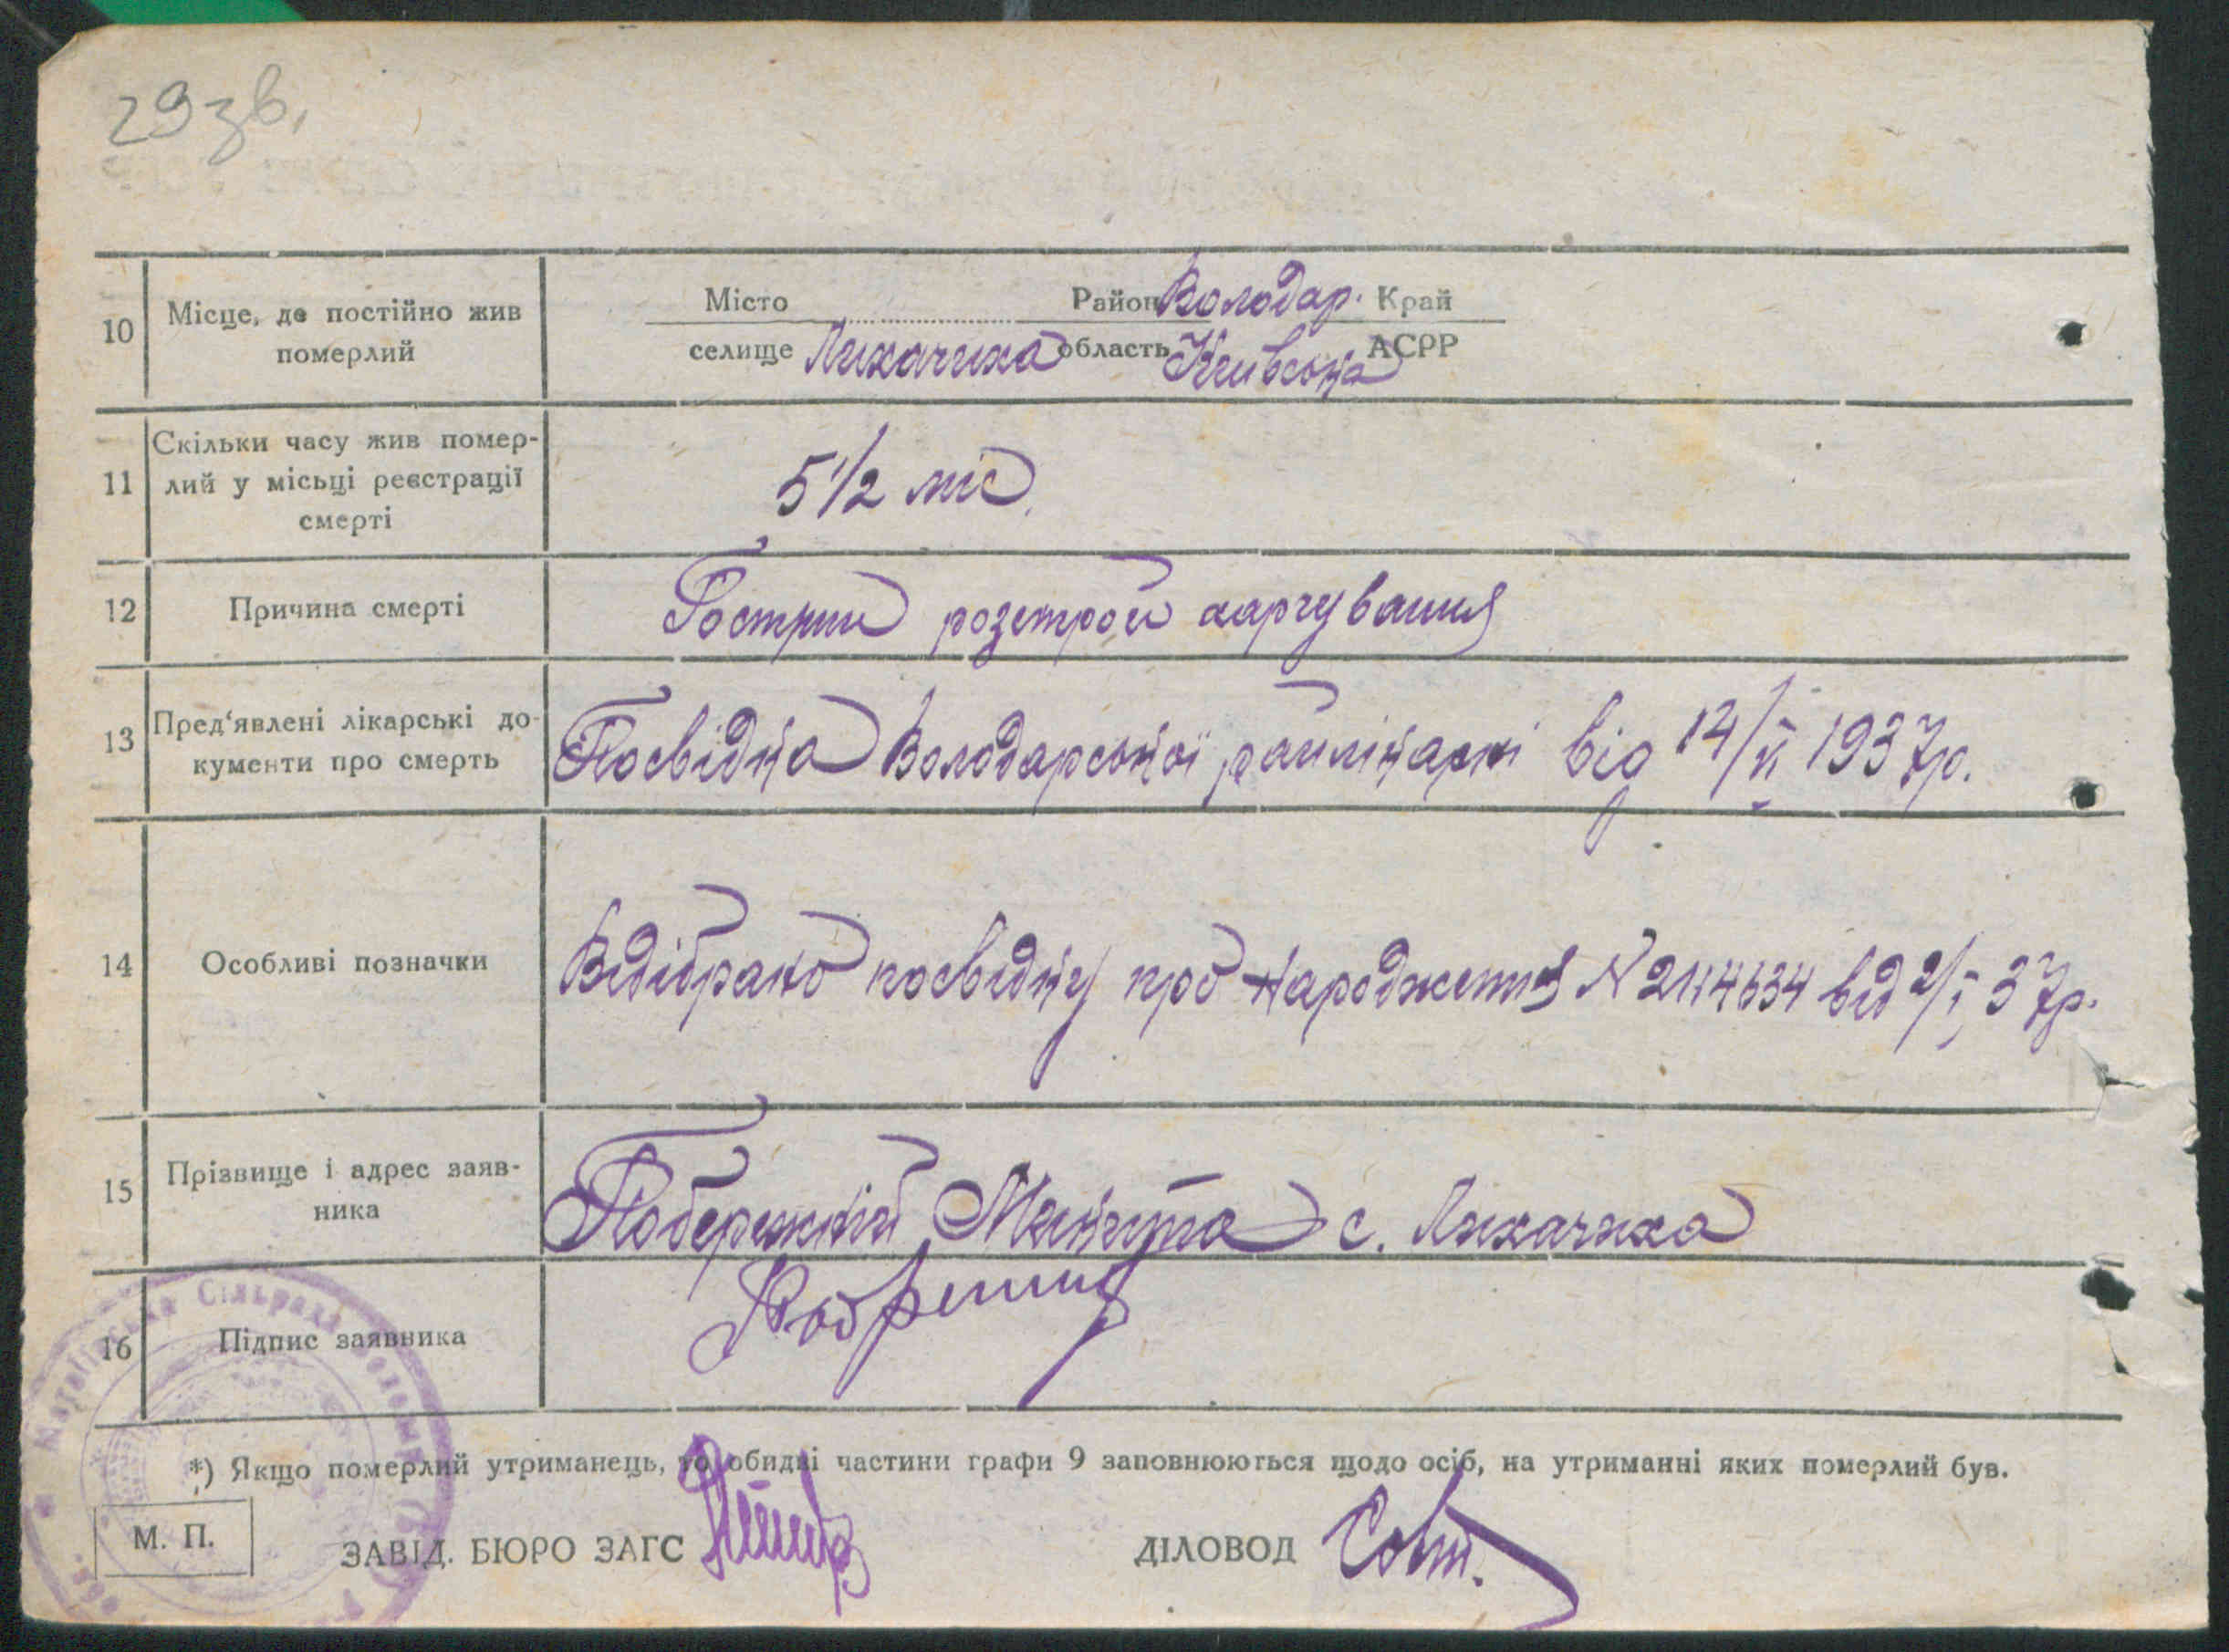 29 зв.
10 Місце, де постійно жив померлий
Місто Район Володар. Край
селище Лихачиха область Київська АСРР
11 Скільки часу жив помер-
лий у місьці реєстрації
смерті
5 1/2 міс.
12 Причина смерті
Гострий розстрой харчування
13 Пред'явлені лікарські до-
кументи про смерть
Посвідка Володарської райлікарні від 14/VI 1937р.
14 Особливі позначки
Відібрано посвідку про народження N 2114634 від 2/I 37р.
15 Прізвище і адрес заяв-
ника
Побережний Микита с. Лихачиха
16 Підпис заявника
*) Якщо померлий утриманець, то обидві частини графи 9 заповнюються щодо осіб, на утриманні яких померлий був.
М. П.
ЗАВІД. БЮРО ЗАГС
ДІЛОВОД
Сільрада